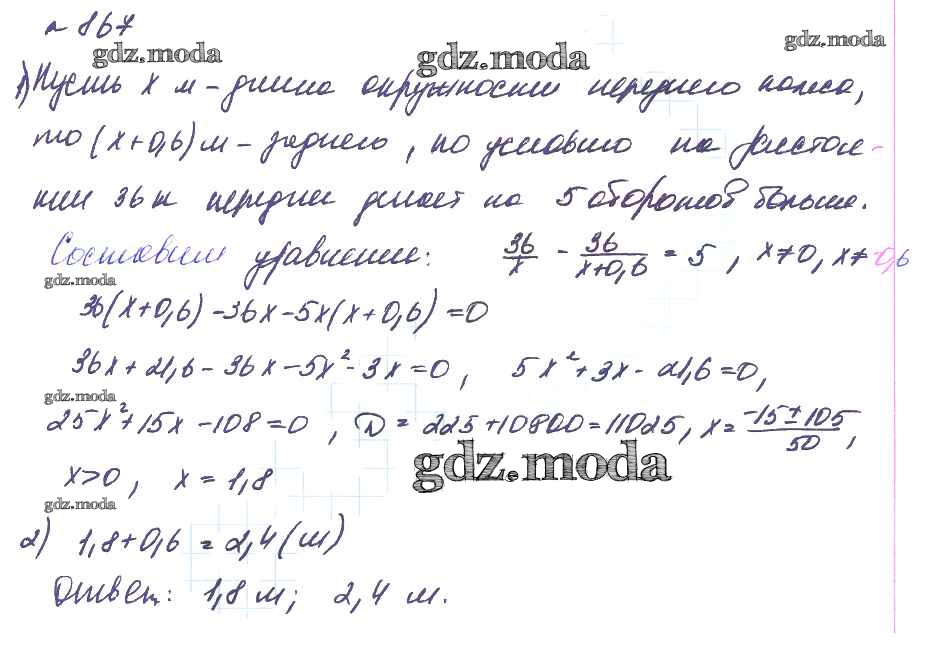 № 867
gdz.moda gdz.moda gdz.moda
1) Пусть x м - длина окружности переднего колеса,
то (x+0,6) м - заднего, по условию на расстоя-
нии 36 м переднее делает на 5 оборотов больше.
Составим уравнение: 36/x - 36/(x+0,6) = 5, x≠0, x≠-0,6
gdz.moda
36(x+0,6) -36x-5x(x+0,6) =0
36x+21,6-36x-5x²-3x=0, 5x²+3x-21,6=0,
gdz.moda
25x²+15x-108=0, D=225+10800=11025, x=(-15±105)/50,
gdz.moda
x>0, x=1,8
gdz.moda
2) 1,8+0,6=2,4(м)
Ответ: 1,8 м; 2,4 м.